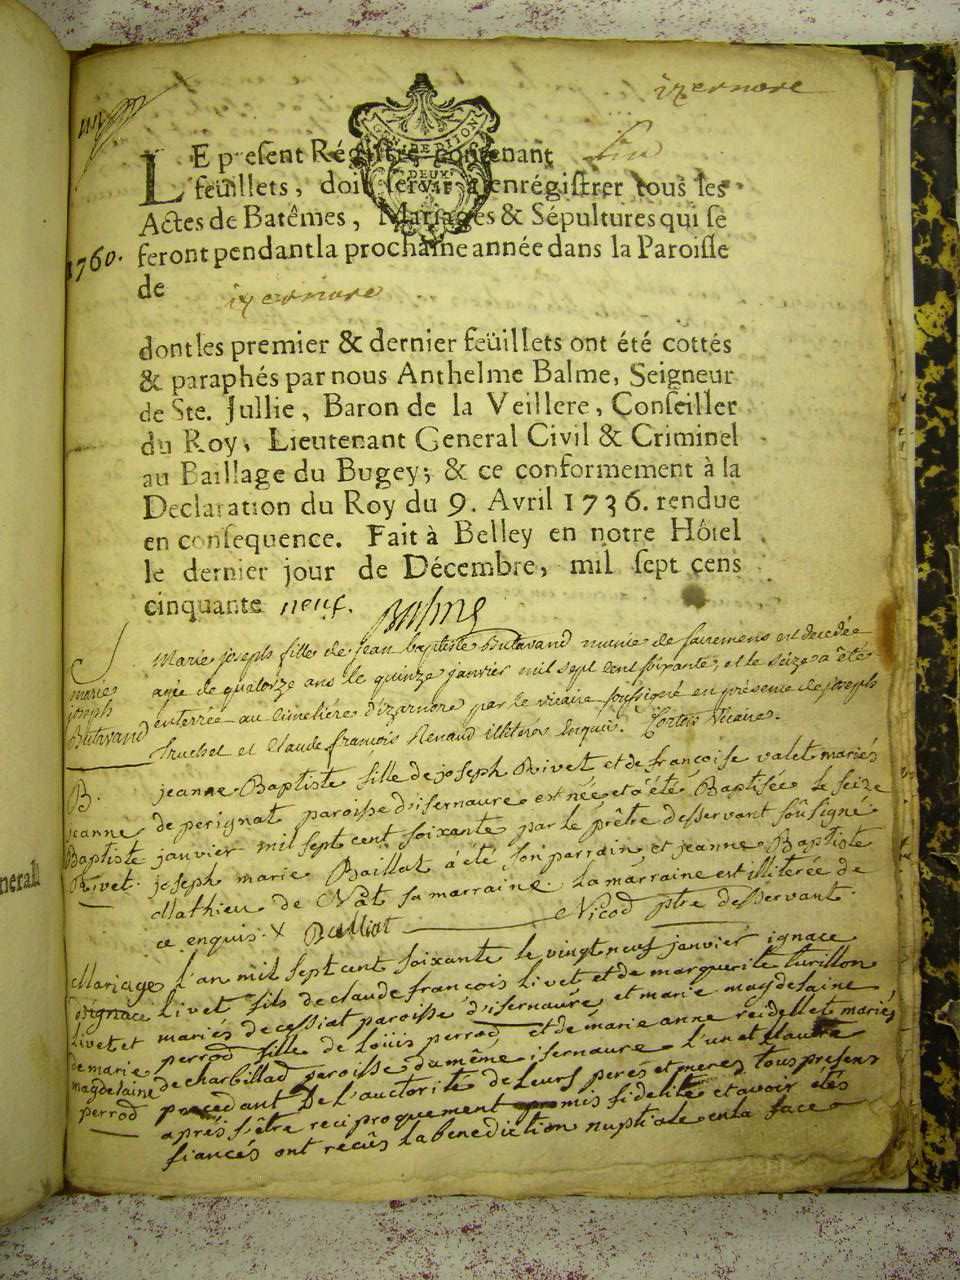 izernore
LE present Régistre contenant six
feüillets, doit servir à enrégistrer tous les
Actes de Batêmes, Mariages & Sépultures qui se
1760. feront pendant la prochaine année dans la Paroisse
de izernore
dont les premier & dernier feüillets ont été cottés
& paraphés par nous Anthelme Balme, Seigneur
de Ste. Jullie, Baron de la Veillere, Conseiller
du Roy, Lieutenant General Civil & Criminel
au Baillage du Bugey; & ce conformement à la
Declaration du Roy du 9. Avril 1736. rendue
en consequence. Fait à Belley en notre Hôtel
le dernier jour de Décembre, mil sept cens
cinquante neuf. Balme
S
marie
joseph
Butavand
Marie joseph fille de jean baptiste Butavand munie de sacremens est decedée
agée de quatorze ans le quinze janvier mil sept cent soixante, et le seize a été
enterrée au cimetière d'izarnore par le vicaire soussigné en présence de joseph
Truchet et Claude françois Renaud illiterés enquis. Vicaire.
B.
jeanne
Baptiste
Rivet.
jeanne Baptiste fille de joseph Rivet et de françoise valet mariés
de perignat paroisse d'isernaure est née et a été Baptisée le seize
janvier mil sept cent soixante par le prêtre desservant soûsigné
joseph marie Baillat a été son parrain et jeanne Baptiste
Mathieu de Nât sa marraine. La marraine est illitérée de
ce enquis. x Balliat Nicod ptre desservant
nerall
Mariage
d'ignace
Livet et
de marie
magdelaine
perrod
L'an mil sept cent soixante le vingt neuf janvier ignace
Livet fils de claude françois Livet et de marguerite turillon
mariés de cessiat paroisse d'isernaure et marie magdelaine
perrod fille de Loüis perrod et de marie anne reidellet mariés
de charbillad paroisse du même isernaure L'un et L'autre
procedant de L'auctorité de Leurs peres et meres tous présens
après s'etre reciproquement promis fidelité et avoir étés
fiancés ont recûs La benediction nuptiale en la face